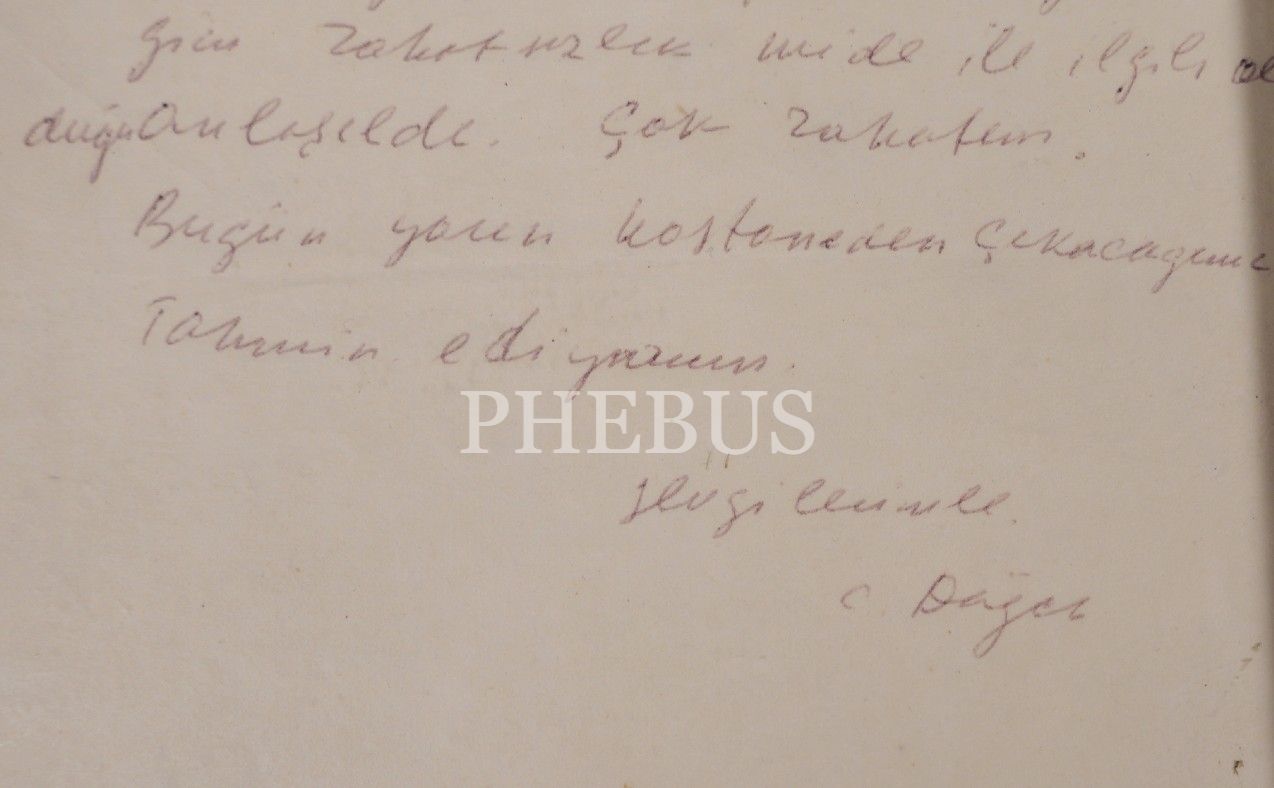 ğım rahatsızlık mide ile ilgili ol
duğu anlaşıldı. Çok rahatım.
Bugün yarın hastaneden çıkacağımı
Tahmin ediyorum.
PHEBUS
Sevgilerimle.
C. Dağcı